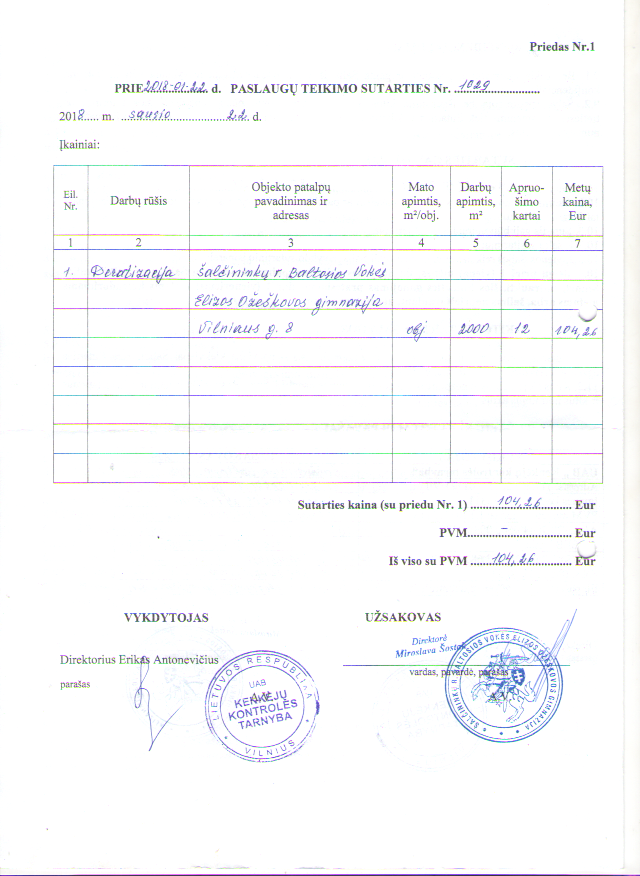 Priedas Nr.1
PRIE 2018-01-22. d. PASLAUGŲ TEIKIMO SUTARTIES Nr. 1029
2018..... m. sausio 22. d.
Įkainiai:
Eil. Nr. Darbų rūšis Objekto patalpų pavadinimas ir adresas Mato apimtis, m²/obj. Darbų apimtis, m² Apruo-šimo kartai Metų kaina, Eur
1 2 3 4 5 6 7
1. Deratizacija Šalčininkų r. Baltosios Vokės
Elizos Ožeškovos gimnazija
Vilniaus g. 8 obj 2000 12 104,26
Sutarties kaina (su priedu Nr. 1) 104,26 Eur
PVM – Eur
Iš viso su PVM 104,26 Eur
VYKDYTOJAS UŽSAKOVAS
Direktorė
Miroslava
Direktorius Erikas Antonevičius
vardas, pavardė, parašas
parašas
LIETUVOS RESPUBLIKA
UAB
KENKĖJŲ
KONTROLĖS
TARNYBA
VILNIUS
ŠALČININKŲ R. BALTOSIOS VOKĖS ELIZOS OŽEŠKOVOS GIMNAZIJA